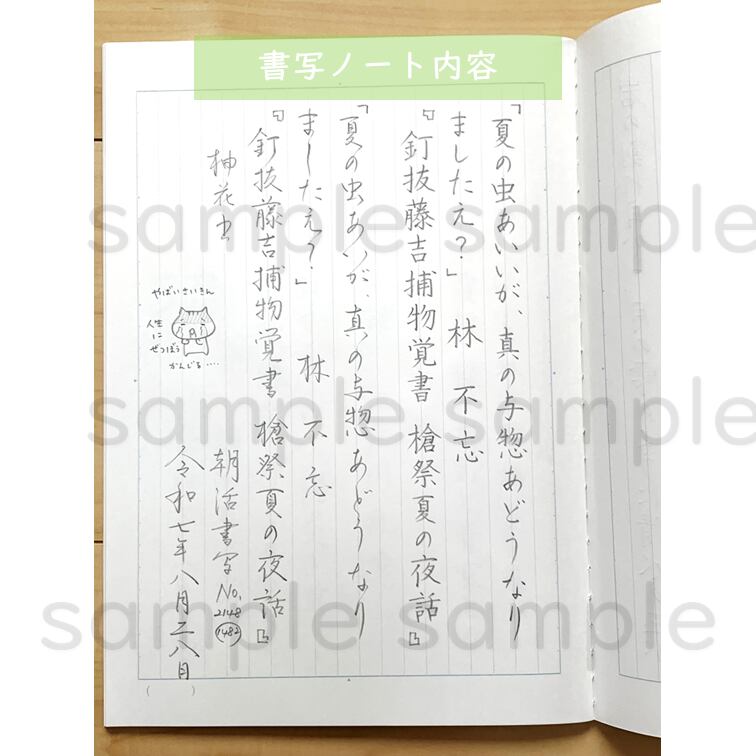 書写ノート内容
「夏の虫あいいが、真の与惣あどうなり
ましたえ?」 林 不忘
『釘抜藤吉捕物覚書 槍祭夏の夜話』
「夏の虫あいいが、真の与惣あどうなり
ましたえ?」 林 不忘
『釘抜藤吉捕物覚書 槍祭夏の夜話』
柚花書
朝活書写 No.2148
1482
令和七年八月二八日
やばいさいきん
人生
に
ぜつぼう
かんじる....
sample sample
sample sample
sample sample